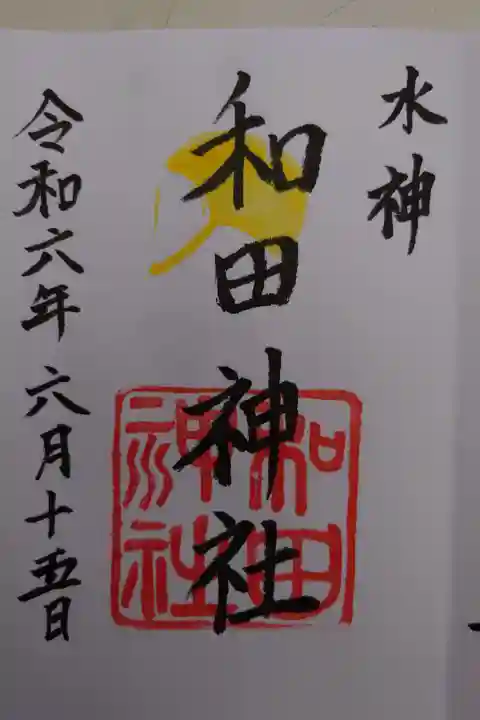 水神
和田神社
和田
神社
令和六年六月十五日